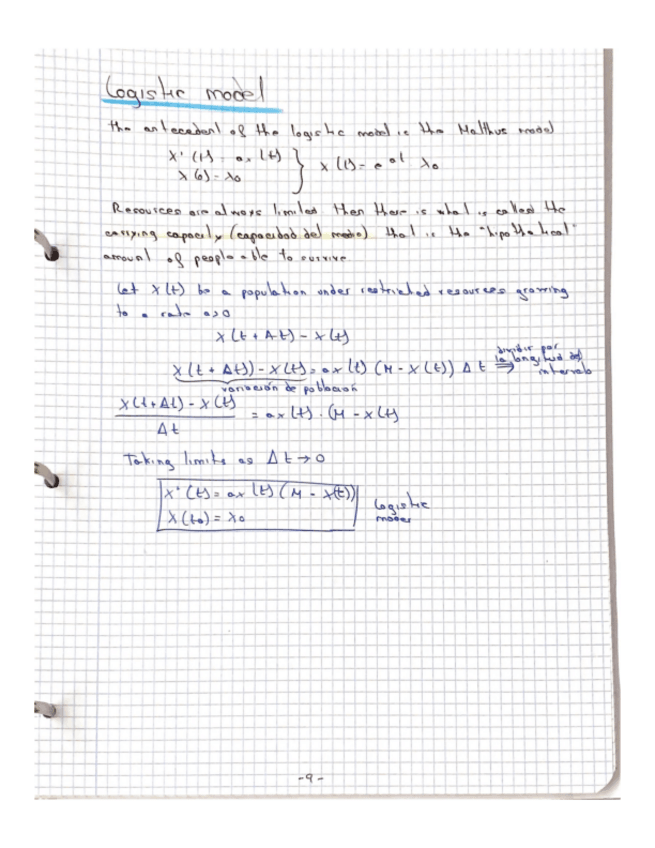 Logistic model
the antecedent of the logistic model is the Malthus model
x'(t) = ax(t) } x(t) = e^at · x₀
x(0) = x₀
Resources are always limited then there is what is called the
carrying capacity (capacidad del medio) that is the "hipothetical"
amount of people able to survive
Let X(t) be a population under restricted resources growing
to a rate a>0
x(t + Δt) - x(t)
x(t + Δt)) - x(t) = ax(t) (M - x(t)) Δt ⇒ dividir por
la longitud del
intervalo
variación de población
x(t+Δt) - x(t) / Δt = ax(t) · (M - x(t)
Taking limits as Δt → 0
x'(t) = ax(t) (M - x(t))
x(t₀) = x₀
Logistic
-9-